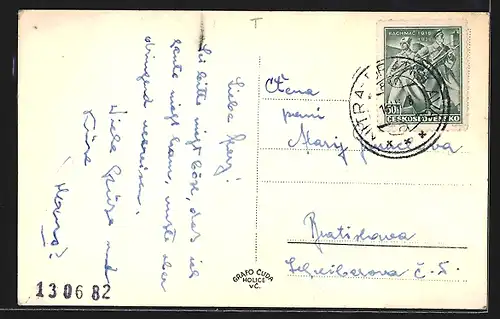 Liebe Mary!
Sei bitte nicht böse, das ich
heute nicht kam, musste aber
dringend verreisen.
Viele Grüsse und
Küsse
Ctěná
paní
Mary
Bratislava
č. 5.
BACHMAČ 1918
1938
ČESKOSLOVENSKO
NITRA
GRAFO ČUDA
HOLICE
V.Č.
13 06 82